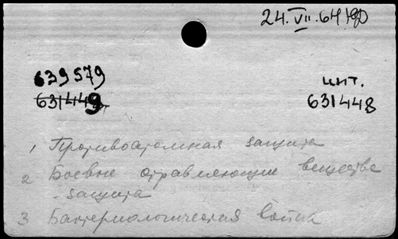 24.VII.64
639579
631449
инт.
631448
1 Противоатомная защита
2 Боевые отравляющие вещества
- защита
3 Бактериологическая война